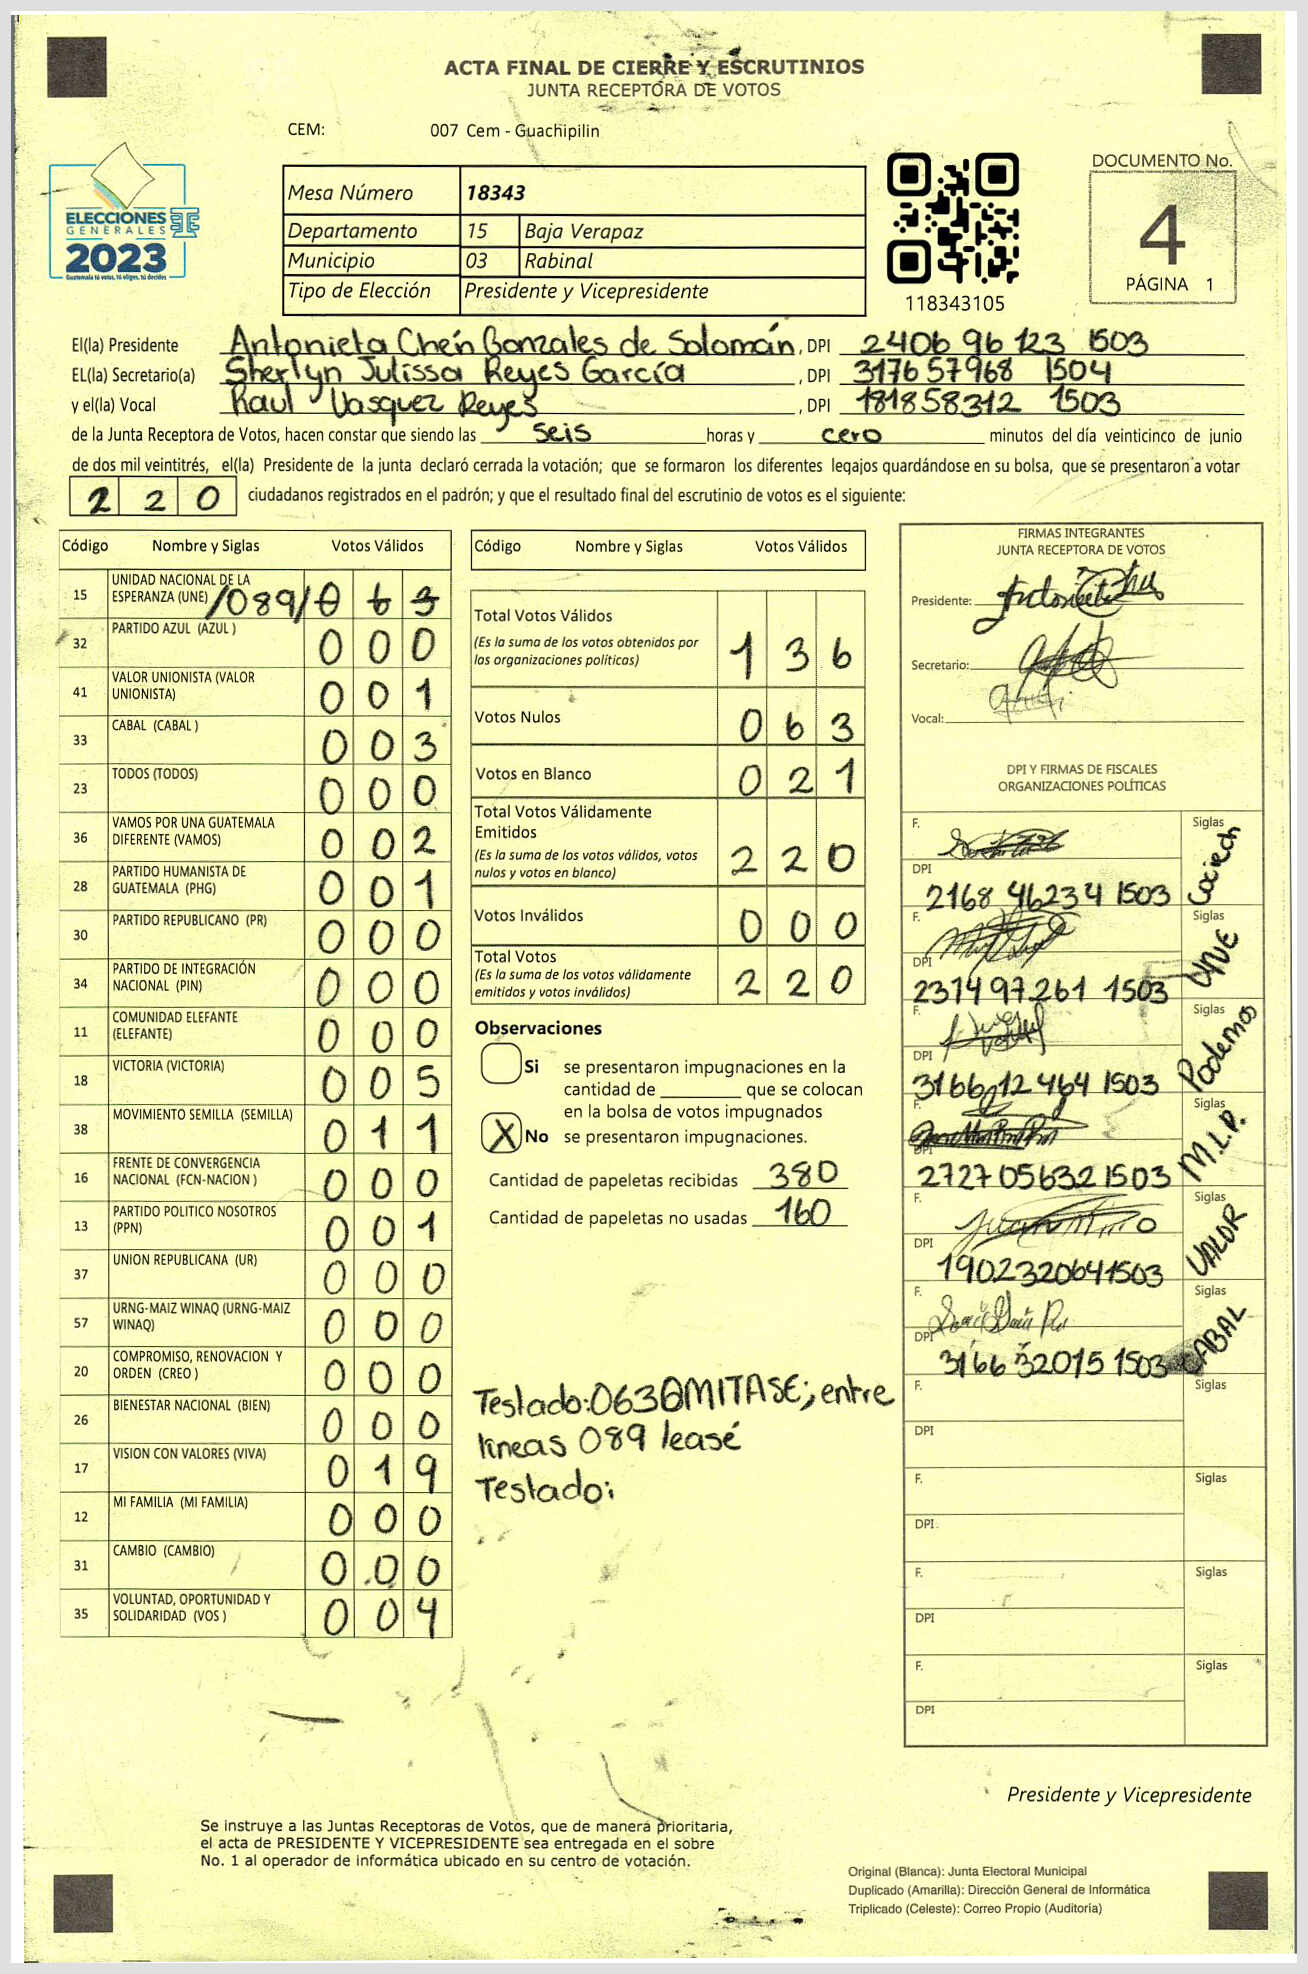 ACTA FINAL DE CIERRE Y ESCRUTINIOS
JUNTA RECEPTORA DE VOTOS
CEM: 007 Cem - Guachipilin
ELECCIONES
GENERALES
2023
Guatemala tú votas, tú eliges, tú decides
Mesa Número 18343
Departamento 15 Baja Verapaz
Municipio 03 Rabinal
Tipo de Elección Presidente y Vicepresidente
118343105
DOCUMENTO No.
4
PÁGINA 1
El(la) Presidente Antonieta Chén Gonzales de Solomán, DPI 2406 96 123 1503
EL(la) Secretario(a) Sherlyn Julissa Reyes García, DPI 3176 57968 1504
y el(la) Vocal Raul Vasquez Reyes, DPI 1818 58312 1503
de la Junta Receptora de Votos, hacen constar que siendo las seis horas y cero minutos del día veinticinco de junio
de dos mil veintitrés, el(la) Presidente de la junta declaró cerrada la votación; que se formaron los diferentes legajos guardándose en su bolsa, que se presentaron a votar
2 2 0 ciudadanos registrados en el padrón; y que el resultado final del escrutinio de votos es el siguiente:
Código Nombre y Siglas Votos Válidos
15 UNIDAD NACIONAL DE LA ESPERANZA (UNE) /089/ 0 6 3
32 PARTIDO AZUL (AZUL ) 0 0 0
41 VALOR UNIONISTA (VALOR UNIONISTA) 0 0 1
33 CABAL (CABAL ) 0 0 3
23 TODOS (TODOS) 0 0 0
36 VAMOS POR UNA GUATEMALA DIFERENTE (VAMOS) 0 0 2
28 PARTIDO HUMANISTA DE GUATEMALA (PHG) 0 0 1
30 PARTIDO REPUBLICANO (PR) 0 0 0
34 PARTIDO DE INTEGRACIÓN NACIONAL (PIN) 0 0 0
11 COMUNIDAD ELEFANTE (ELEFANTE) 0 0 0
18 VICTORIA (VICTORIA) 0 0 5
38 MOVIMIENTO SEMILLA (SEMILLA) 0 1 1
16 FRENTE DE CONVERGENCIA NACIONAL (FCN-NACION ) 0 0 0
13 PARTIDO POLITICO NOSOTROS (PPN) 0 0 1
37 UNION REPUBLICANA (UR) 0 0 0
57 URNG-MAIZ WINAQ (URNG-MAIZ WINAQ) 0 0 0
20 COMPROMISO, RENOVACION Y ORDEN (CREO ) 0 0 0
26 BIENESTAR NACIONAL (BIEN) 0 0 0
17 VISION CON VALORES (VIVA) 0 1 9
12 MI FAMILIA (MI FAMILIA) 0 0 0
31 CAMBIO (CAMBIO) 0 0 0
35 VOLUNTAD, OPORTUNIDAD Y SOLIDARIDAD (VOS ) 0 0 4
Código Nombre y Siglas Votos Válidos
Total Votos Válidos
(Es la suma de los votos obtenidos por
las organizaciones políticas) 1 3 6
Votos Nulos 0 6 3
Votos en Blanco 0 2 1
Total Votos Válidamente
Emitidos
(Es la suma de los votos válidos, votos
nulos y votos en blanco) 2 2 0
Votos Inválidos 0 0 0
Total Votos
(Es la suma de los votos válidamente
emitidos y votos inválidos) 2 2 0
Observaciones
Si se presentaron impugnaciones en la
cantidad de ________ que se colocan
en la bolsa de votos impugnados
X No se presentaron impugnaciones.
Cantidad de papeletas recibidas 380
Cantidad de papeletas no usadas 160
Testado: 063 OMITASE; entre
líneas 089 leasé
Testado;
FIRMAS INTEGRANTES
JUNTA RECEPTORA DE VOTOS
Presidente:
Secretario:
Vocal:
DPI Y FIRMAS DE FISCALES
ORGANIZACIONES POLÍTICAS
F. Siglas
DPI 2168 46234 1503
F. Siglas UNE
DPI 2314 97261 1503
F. Siglas Podemos
DPI 3166 12 464 1503
F. Siglas M.L.P.
DPI 2727 05632 1503
F. Siglas VALOR
DPI 1902320641503
F. Siglas CABAL
DPI 3166 32015 1503
F. Siglas
DPI
F. Siglas
DPI
F. Siglas
DPI
F. Siglas
DPI
Presidente y Vicepresidente
Se instruye a las Juntas Receptoras de Votos, que de manera prioritaria,
el acta de PRESIDENTE Y VICEPRESIDENTE sea entregada en el sobre
No. 1 al operador de informática ubicado en su centro de votación.
Original (Blanca): Junta Electoral Municipal
Duplicado (Amarilla): Dirección General de Informática
Triplicado (Celeste): Correo Propio (Auditoría)